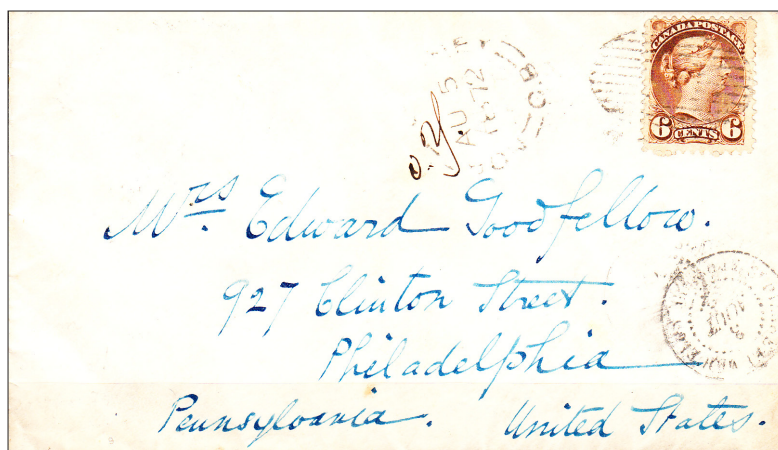 CANADA POSTAGE
6 CENTS 6
AU 5
1872
Mrs Edward Goodfellow.
927 Clinton Street.
Philadelphia
Pennsylvania. United States.
AOUT